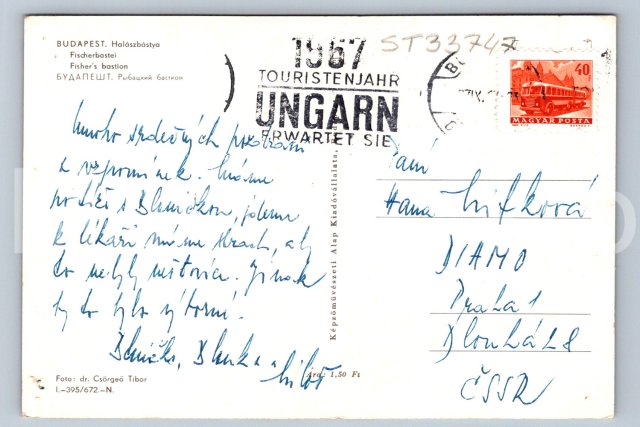 BUDAPEST. Halászbástya
Fischerbastei
Fisher's bastion
БУДАПЕШТ. Рыбацкий бастион
1967
TOURISTENJAHR
UNGARN
ERWARTET SIE
ST33747
40
MAGYAR POSTA
Mnoho srdečných pozdravů
a vzpomínek. Máme
potíže s Blaničkou, jdeme
k lékaři máme strach, aby
to nebyly neštovice. Jinak
by to bylo výborné.
Blanička, Blanka a
Miloš
Paní
Hana Lifková
DIAMO
Praha 1
Dlouhá 28
ČSSR
Képzőművészeti Alap Kiadóvállalata,
Ára: 1,50 Ft
Foto: dr. Csörgeő Tibor
I.-395/672.-N.